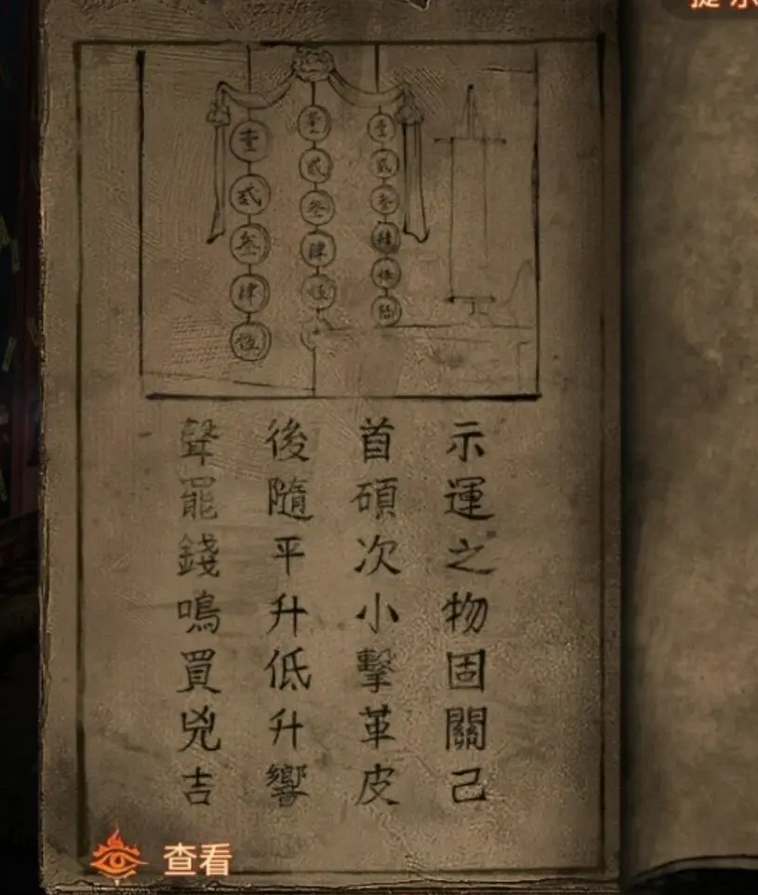 壹贰叁肆伍
壹贰叁肆伍
壹贰叁肆伍陆
示運之物固關己
首碩次小擊革皮
後隨平升低升響
聲罷錢鳴買兇吉
查看